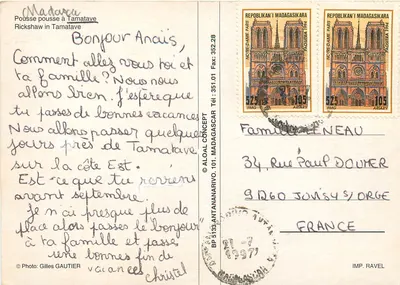 Madagas
Pousse pousse à Tamatave
Rickshaw in Tamatave
Bonjour Anaïs,
Comment allez vous toi et
ta famille? Nous nous
allons bien. J'espère que
tu passes de bonnes vacances
Nous allons passer quelques
jours près de Tamatave
sur la côte Est.
Est-ce que tu
avant septembre.
Je n'ai presque plus de
place alors passe le bonjour
à ta famille et passe
une bonne fin de
vacances Christel
© Photo: Gilles GAUTIER
© ALOAL CONCEPT
BP 5133 ANTANANARIVO. 101. MADAGASCAR Tél : 351.01 Fax: 352.28
REPOBLIKAN'I MADAGASIKARA
NOTRE-DAME PARIS
525
105
REPOBLIKAN'I MADAGASIKARA
NOTRE-DAME PARIS
525
105
34, Rue Paul DOUMER
91260 JUVISY S/ORGE
FRANCE
IMP. RAVEL